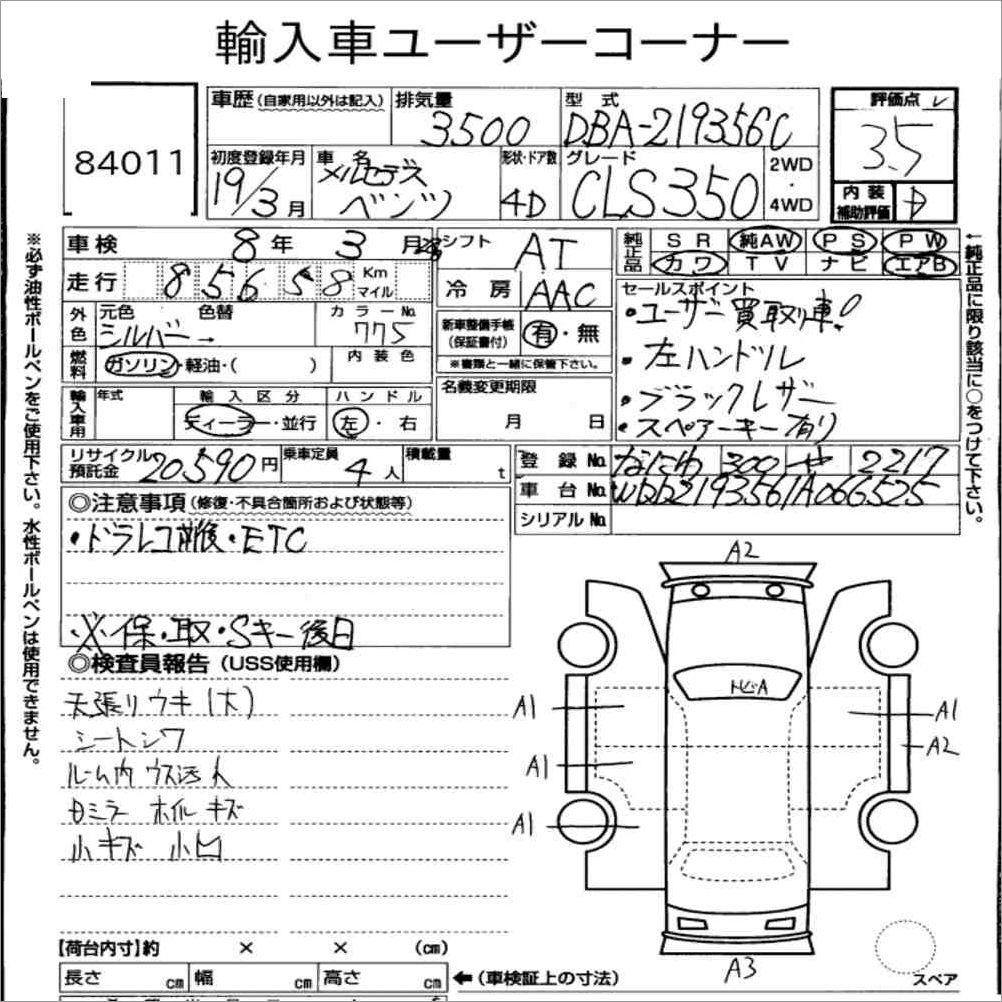 輸入車ユーザーコーナー
84011
車歴 (自家用以外は記入)
排気量 3500
型式 DBA-219356C
評価点 3.5
初度登録年月 19/3月
車名 メルセデス ベンツ
形状・ドア数 4D
グレード CLS350
2WD・4WD
内装補助評価
車検 8年 3月
シフト AT
純正品 SR 純AW PS PW
カワ TV ナビ エアB
走行 85658 Km マイル
冷房 AAC
セールスポイント
・ユーザー買取り車!
・左ハンドル
・ブラックレザー
・スペアーキー有り
外色 元色 シルバー→ 色替
カラーNo. 775
新車整備手帳(保証書付) 有・無
※書類と一緒に保管下さい。
燃料 ガソリン・軽油・( )
内装色
名義変更期限 月 日
輸入車用 年式
輸入区分 ディーラー・並行
ハンドル 左・右
リサイクル預託金 20,590円
乗車定員 4人
積載量 t
登録No. なにわ 300 や 2217
車台No. WDD2193561A066525
シリアルNo.
◎注意事項 (修復・不具合箇所および状態等)
・ドラレコ前後・ETC
・※保・取・Sキー後日
◎検査員報告 (USS使用欄)
天張りウキ(大)
シートシワ
ルーム内 ウス汚れ
ミラー ホイルキズ
小キズ 小凹
A2
トビA
A1
A1
A1
A1
A2
A3
スペア
【荷台内寸】約 × × (cm)
長さ cm 幅 cm 高さ cm ←(車検証上の寸法)
※必ず油性ボールペンをご使用下さい。水性ボールペンは使用できません。
←純正品に限り該当に○をつけて下さい。